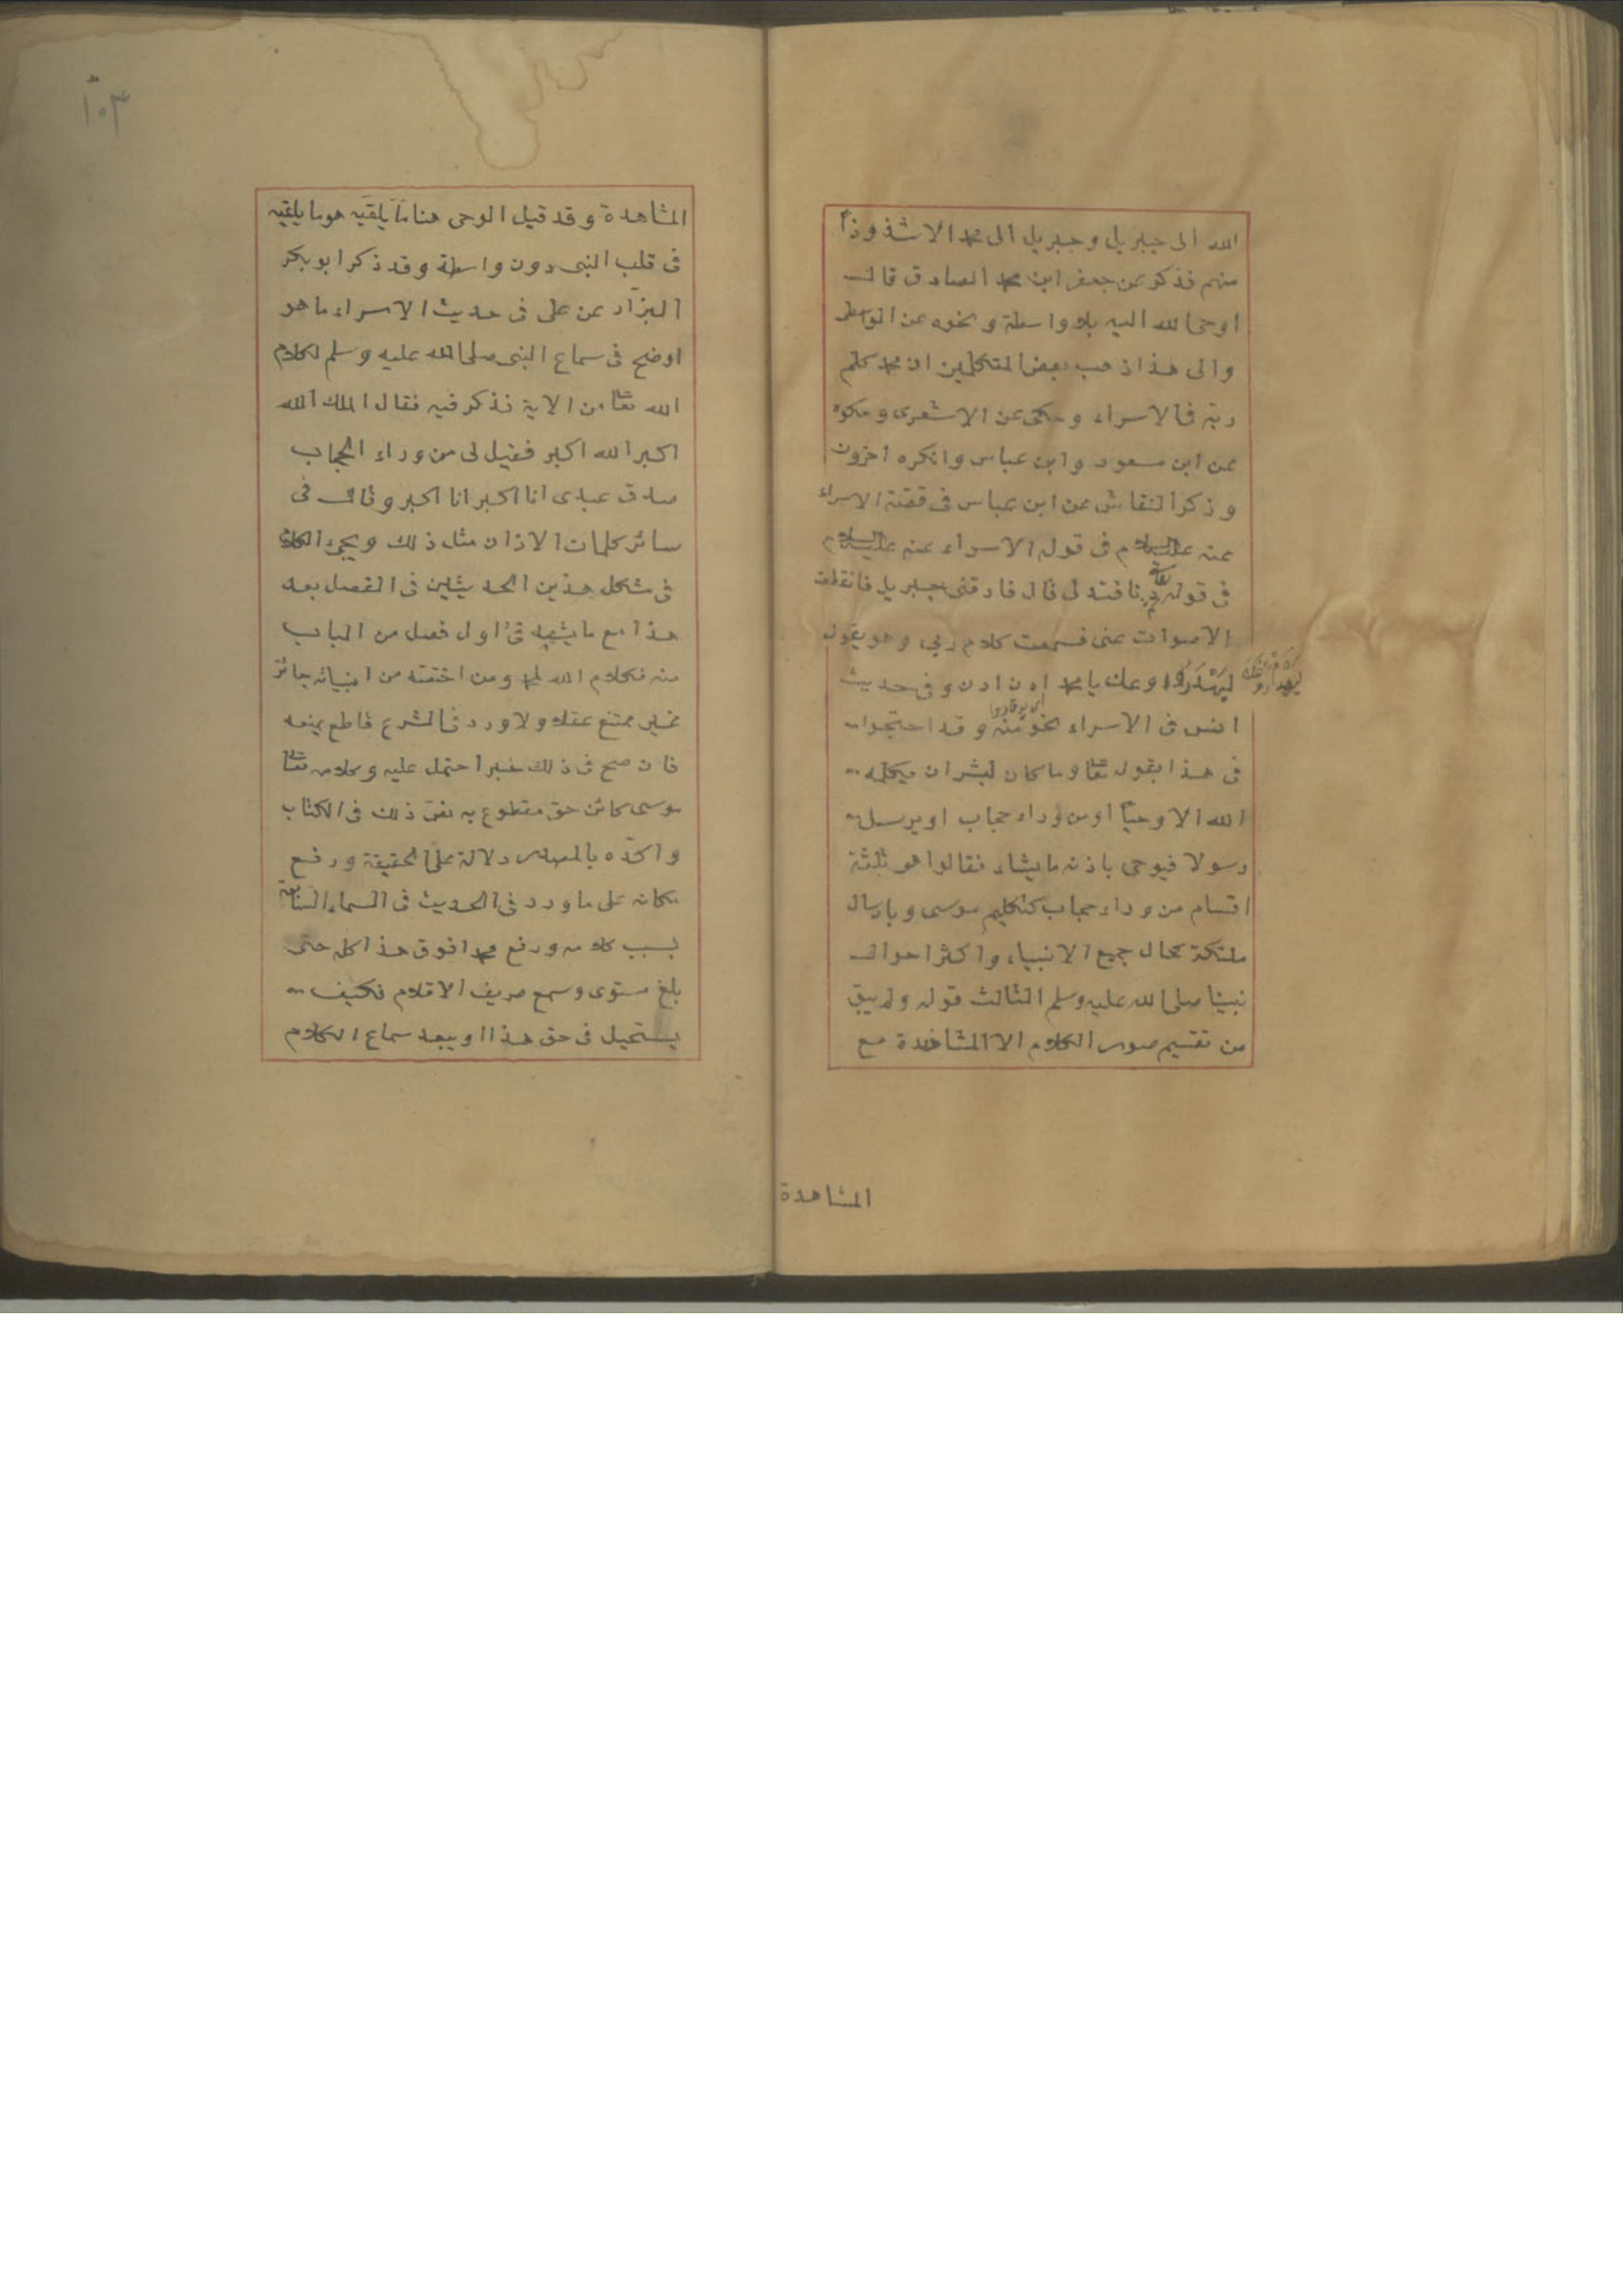 الله الى جبريل وجبريل الى محمد الا شذوذا
منهم فذكر عن جعفر ابن محمد الصادق قال
اوحى الله اليه بلا واسطة ونحوه عن الواسطى
والى هذا ذهب بعض المتكلمين ان محمد كلم
ربه فى الاسراء وحكى عن الاشعرى وحكوه
عن ابن مسعود وابن عباس وانكره اخرون
وذكر النقاش عن ابن عباس فى قصة الاسراء
عنه عليه السلام فى قوله الاسراء عنه عليه السلام
فى قوله دنا فتدلى قال فارقنى جبريل فانقطعت
الاصوات عنى فسمعت كلام ربى وهو يقول
روعك يا محمد ادن ادن وفى حديث
انس فى الاسراء نحو منه وقد احتجوا
فى هذا بقوله تعا وما كان لبشر ان يكلمه
الله الا وحيا او من وراء حجاب او يرسل
رسولا فيوحى باذنه ما يشاء فقالوا هو ثلثة
اقسام من وراء حجاب كتكليم موسى وبارسال
ملئكة كحال جميع الانبياء واكثر احوال
نبينا صلى الله عليه وسلم الثالث قوله ولم يبق
من تقسيم صور الكلام الا المشاهدة مع
المشاهدة
١٠٣
المشاهدة وقد قيل الوحى هنا ما يلقيه هو ما يلقيه
فى قلب النبى دون واسطة وقد ذكر ابو بكر
البزار عن على فى حديث الاسراء ما هو
اوضح فى سماع النبى صلى الله عليه وسلم لكلام
الله تعا من الاية فذكر فيه فقال الملك الله
اكبر الله اكبر فقيل لى من وراء الحجاب
صدق عبدى انا اكبر انا اكبر وقال فى
سائر كلمات الاذان مثل ذلك ويجئ الكلام
فى شكل هذين الحديثين فى الفصل بعد
هذا مع ما يشبهه فى اول فصل من الباب
منه فكلام الله لمحمد ومن اختصه من انبيائه جائز
غير ممتنع عقلا ولا ورد فى الشرع قاطع يمنعه
فان صح فى ذلك خبر احتمل عليه وكلامه تعا
موسى كائن حق مقطوع به نص ذلك فى الكتاب
واكده بالمصدر دلالة على الحقيقة ورفع
مكانه على ما ورد فى الحديث فى السماء السابعة
بسبب كلامه ورفع محمدا فوق هذا كله حتى
بلغ مستوى وسمع صريف الاقلام فكيف
يستحيل فى حق هذا او يبعد سماع الكلام